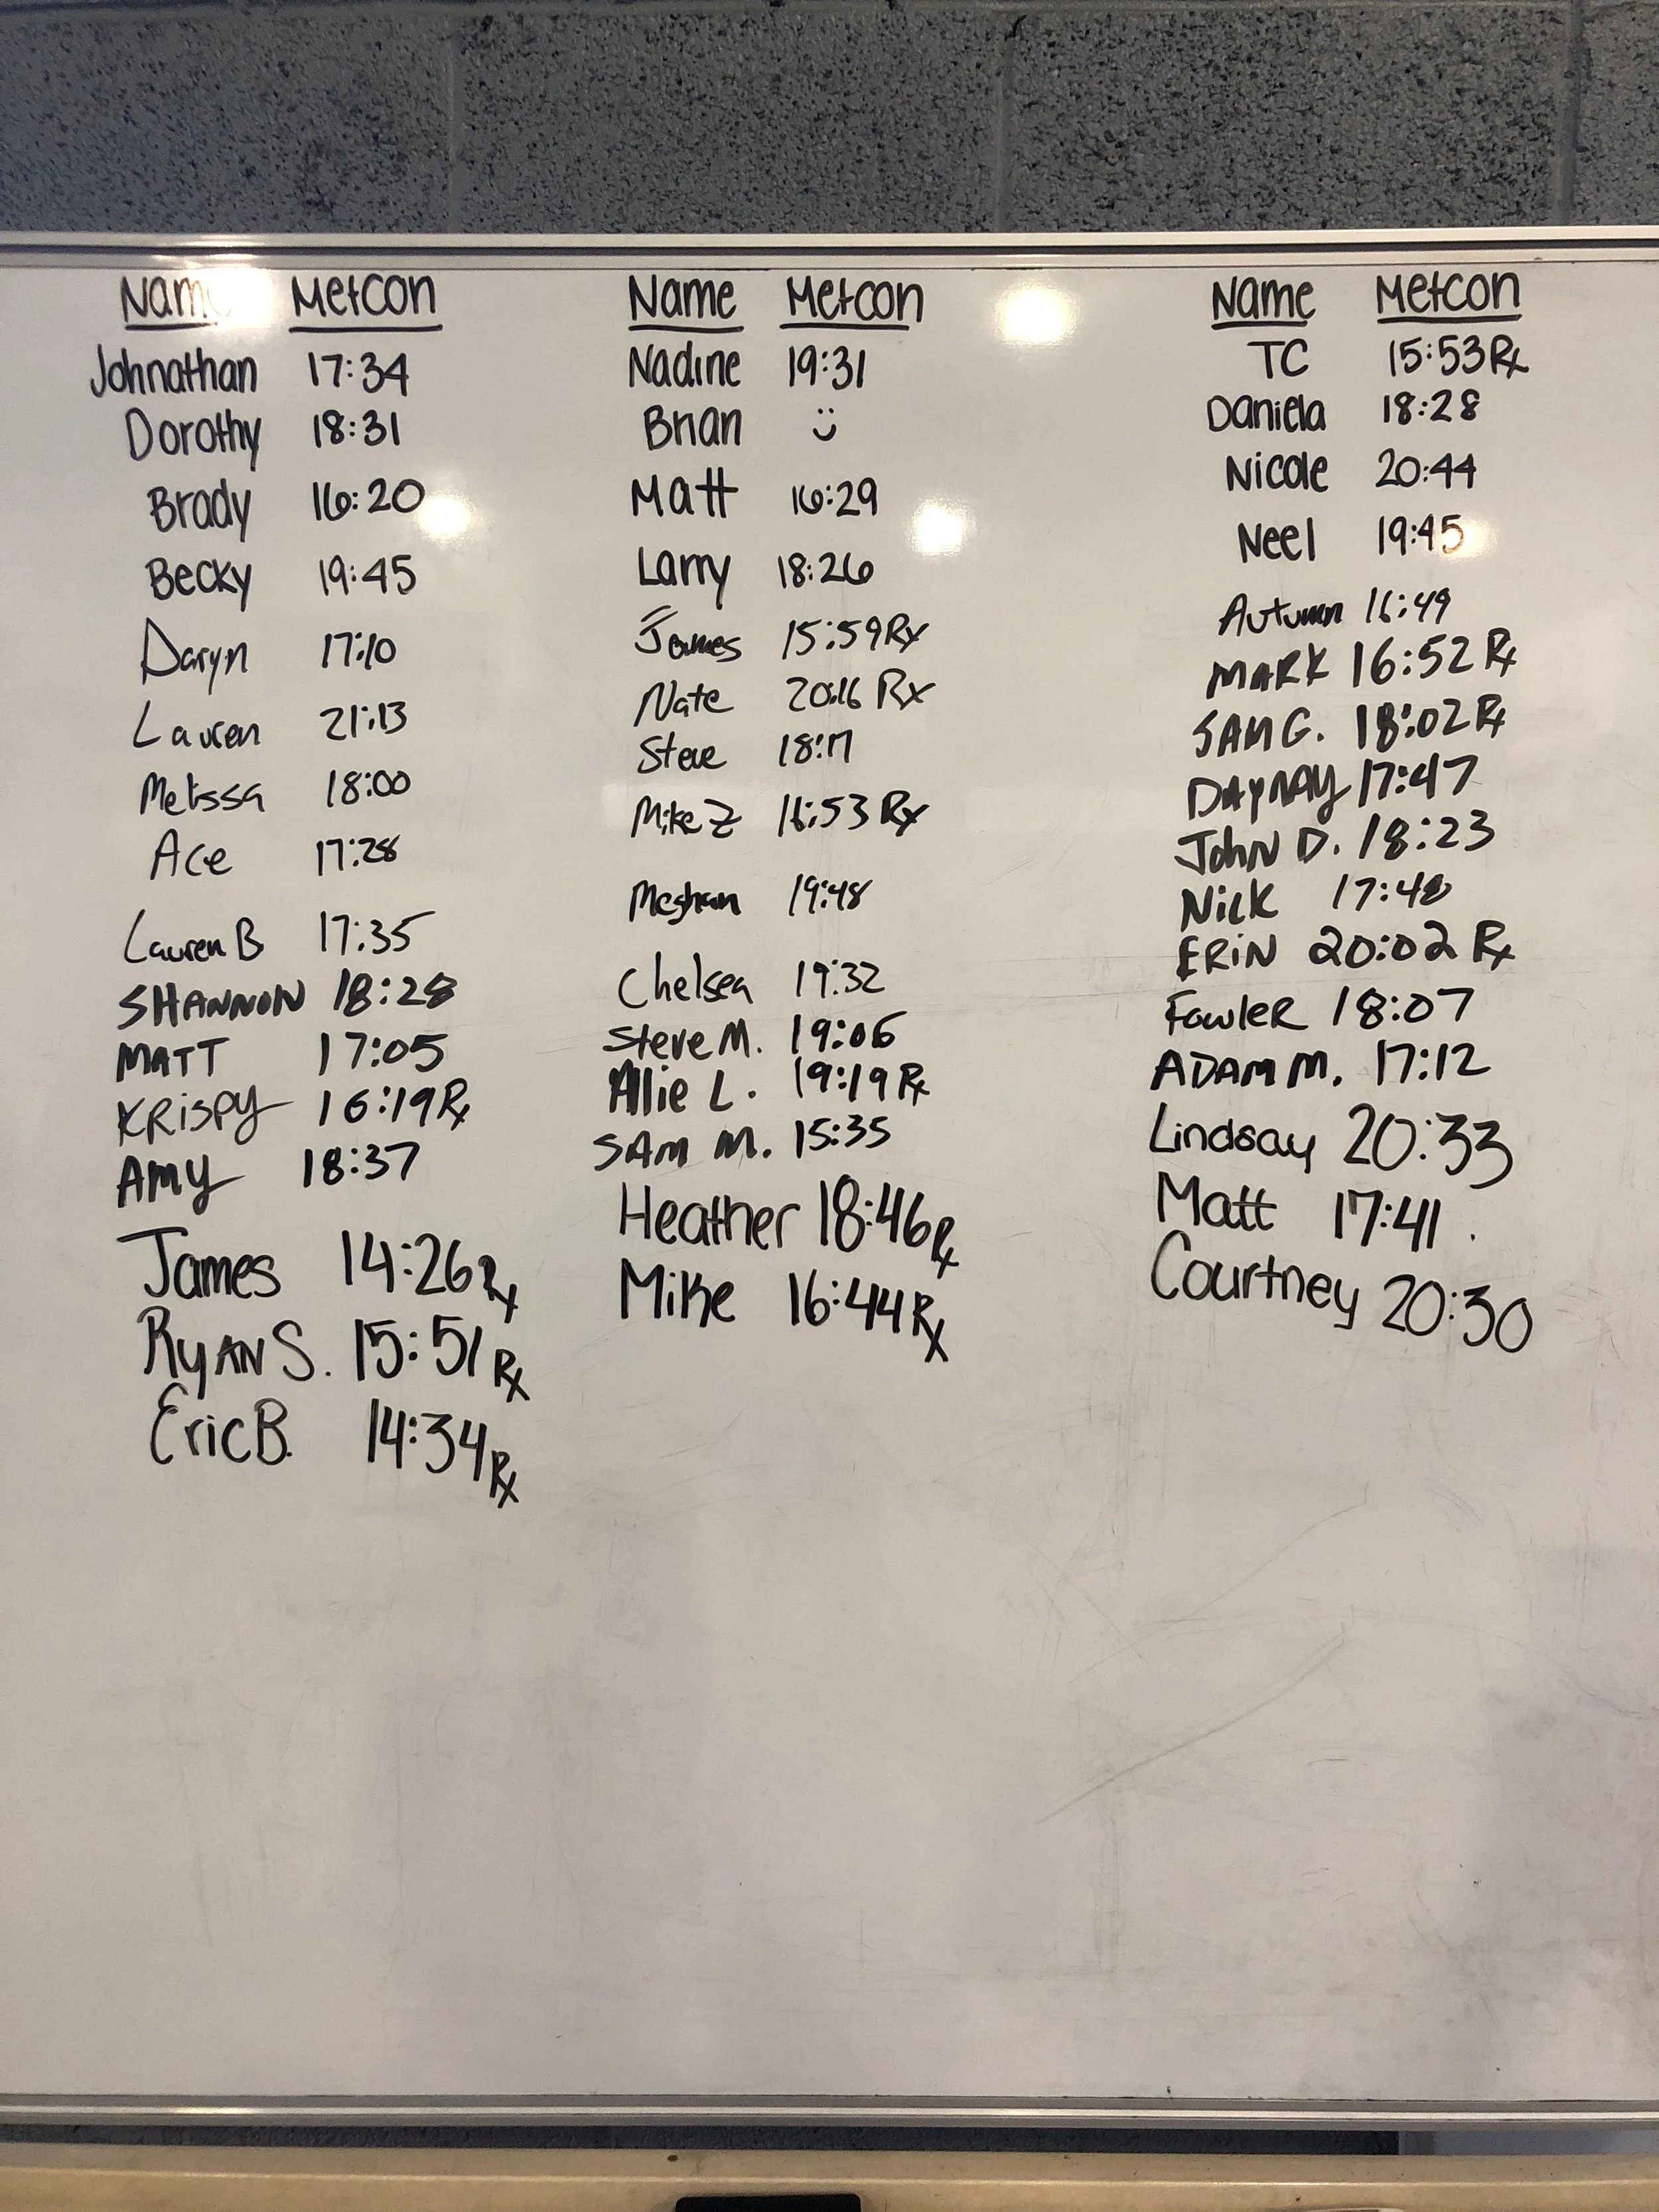 Name Metcon
Johnathan 17:34
Dorothy 18:31
Brady 16:20
Becky 19:45
Daryn 17:10
Lauren 21:13
Melissa 18:00
Ace 17:28
Lauren B 17:35
SHANNON 18:28
MATT 17:05
KRISPY 16:19 Rx
AMY 18:37
James 14:26 Rx
RYAN S. 15:51 Rx
Eric B. 14:34 Rx
Name Metcon
Nadine 19:31
Brian :)
Matt 16:29
Larry 18:26
James 15:59 Rx
Nate 20:16 Rx
Steve 18:17
Mike Z 16:53 Rx
Meghan 19:48
Chelsea 19:32
Steve M. 19:06
Allie L. 19:19 Rx
SAM M. 15:35
Heather 18:46 Rx
Mike 16:44 Rx
Name Metcon
TC 15:53 Rx
Daniela 18:28
Nicole 20:44
Neel 19:45
Autumn 16:49
MARK 16:52 Rx
SAM G. 18:02 Rx
DAYNAY 17:47
JOHN D. 18:23
NICK 17:48
ERIN 20:02 Rx
FOWLER 18:07
ADAM M. 17:12
Lindsay 20:33
Matt 17:41
Courtney 20:30